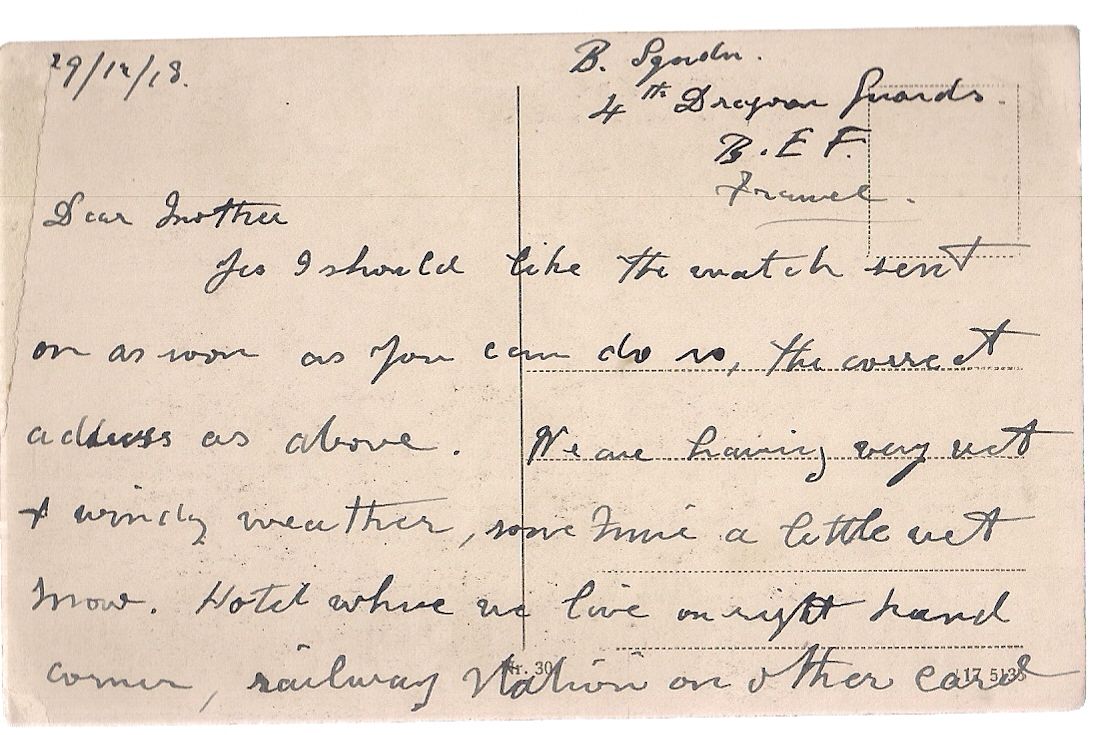 29/12/18.
B. Sqndn.
4th Dragoon Guards.
B.E.F.
France.
Dear Mother
Yes I should like the watch sent
on as soon as you can do so, the correct
address as above. We are having very wet
& windy weather, some time a little wet
snow. Hotel where we live on right hand
corner, railway station on other card
Nr. 30